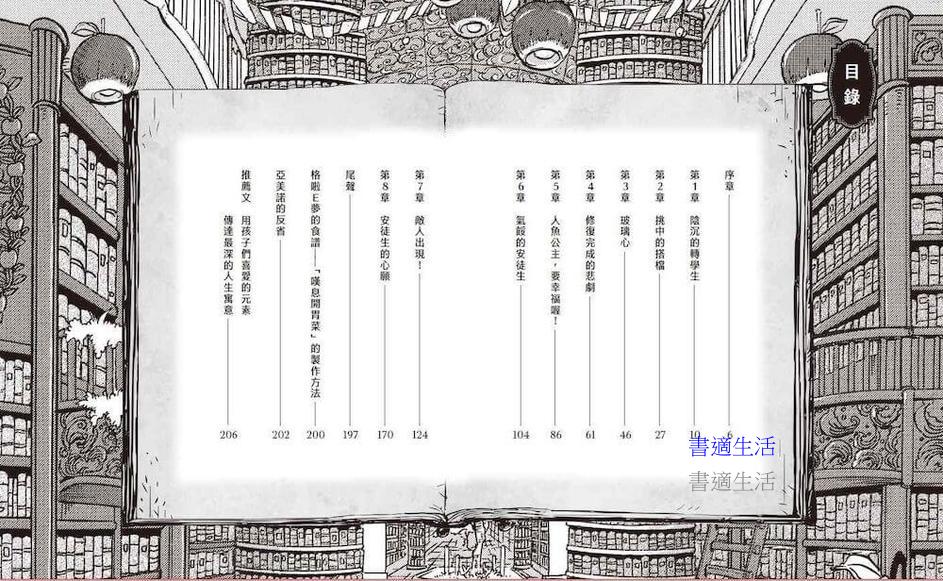 目錄
序章 6
第1章 陰沉的轉學生 10
第2章 挑中的搭檔 27
第3章 玻璃心 46
第4章 修復完成的悲劇 61
第5章 人魚公主，要幸福喔！ 86
第6章 氣餒的安徒生 104
第7章 敵人出現！ 124
第8章 安徒生的心願 170
尾聲 197
格啦E夢的食譜——「嘆息開胃菜」的製作方法 200
亞美諾的反省 202
推薦文 用孩子們喜愛的元素
傳達最深的人生寓意 206
書適生活
書適生活